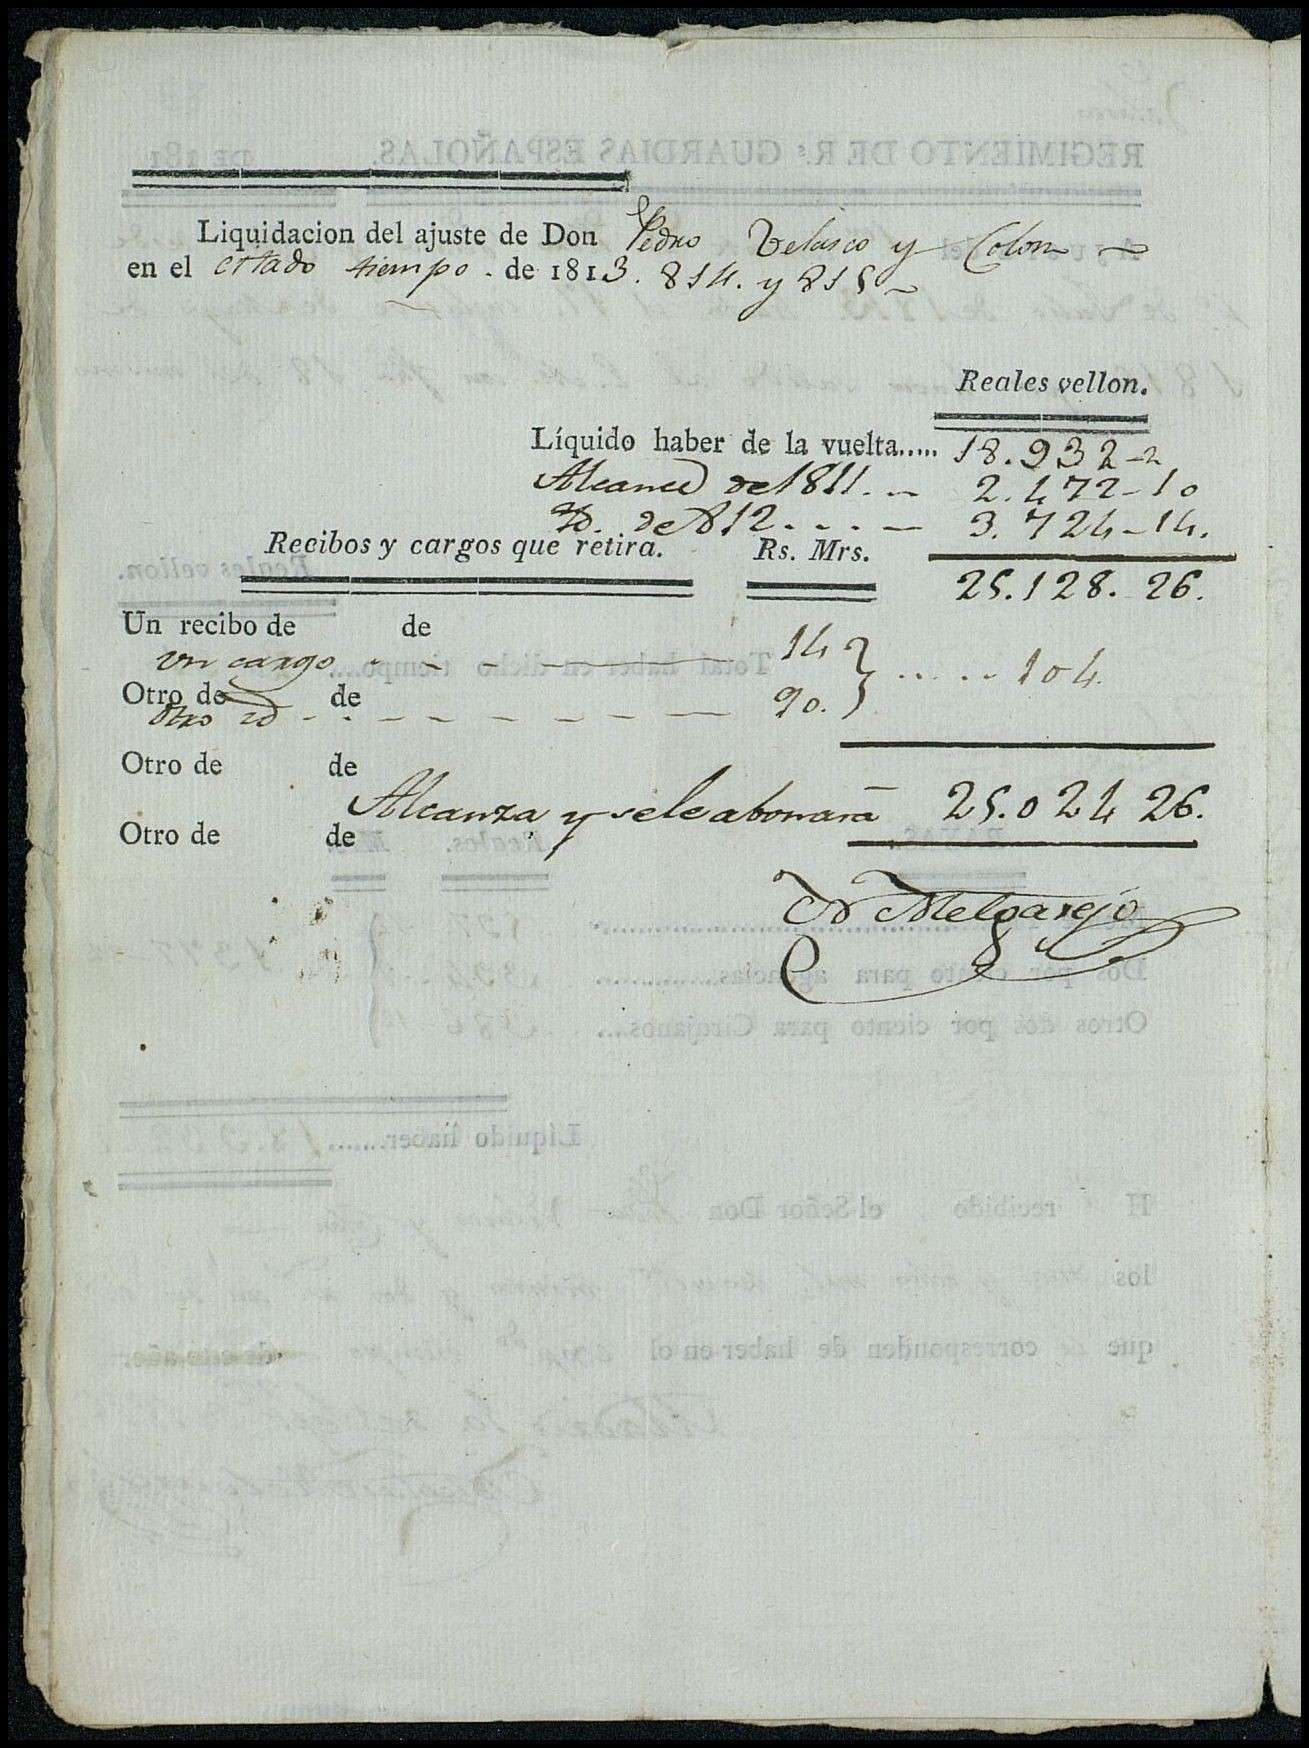 Liquidacion del ajuste de Don Pedro Velasco y Colon
en el citado tiempo. de 1813. 814. y 815
Reales vellon.
Líquido haber de la vuelta..... 18.932-2
Alcance de 1811. - 2.472-10
Yd. de 812 . . . - 3.724-14.
Recibos y cargos que retira. Rs. Mrs.
25.128. 26.
Un recibo de de
un cargo - - - 14 } ..... 104.
Otro de de
otro id - - - - - - - 90.
Otro de de
Alcanza y se le abonará 25.024 26.
Otro de de
Melgarejo